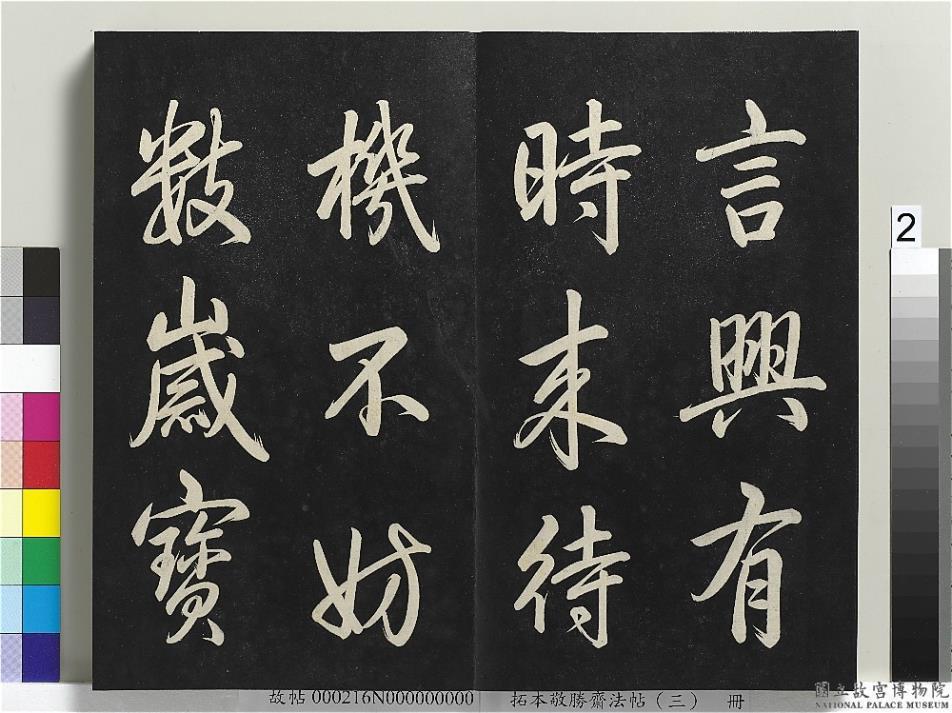 言興有
時来待
機不妨
數歲寶
2
故帖 000216N000000000 拓本敬勝齋法帖(三) 冊
國立故宮博物院
NATIONAL PALACE MUSEUM